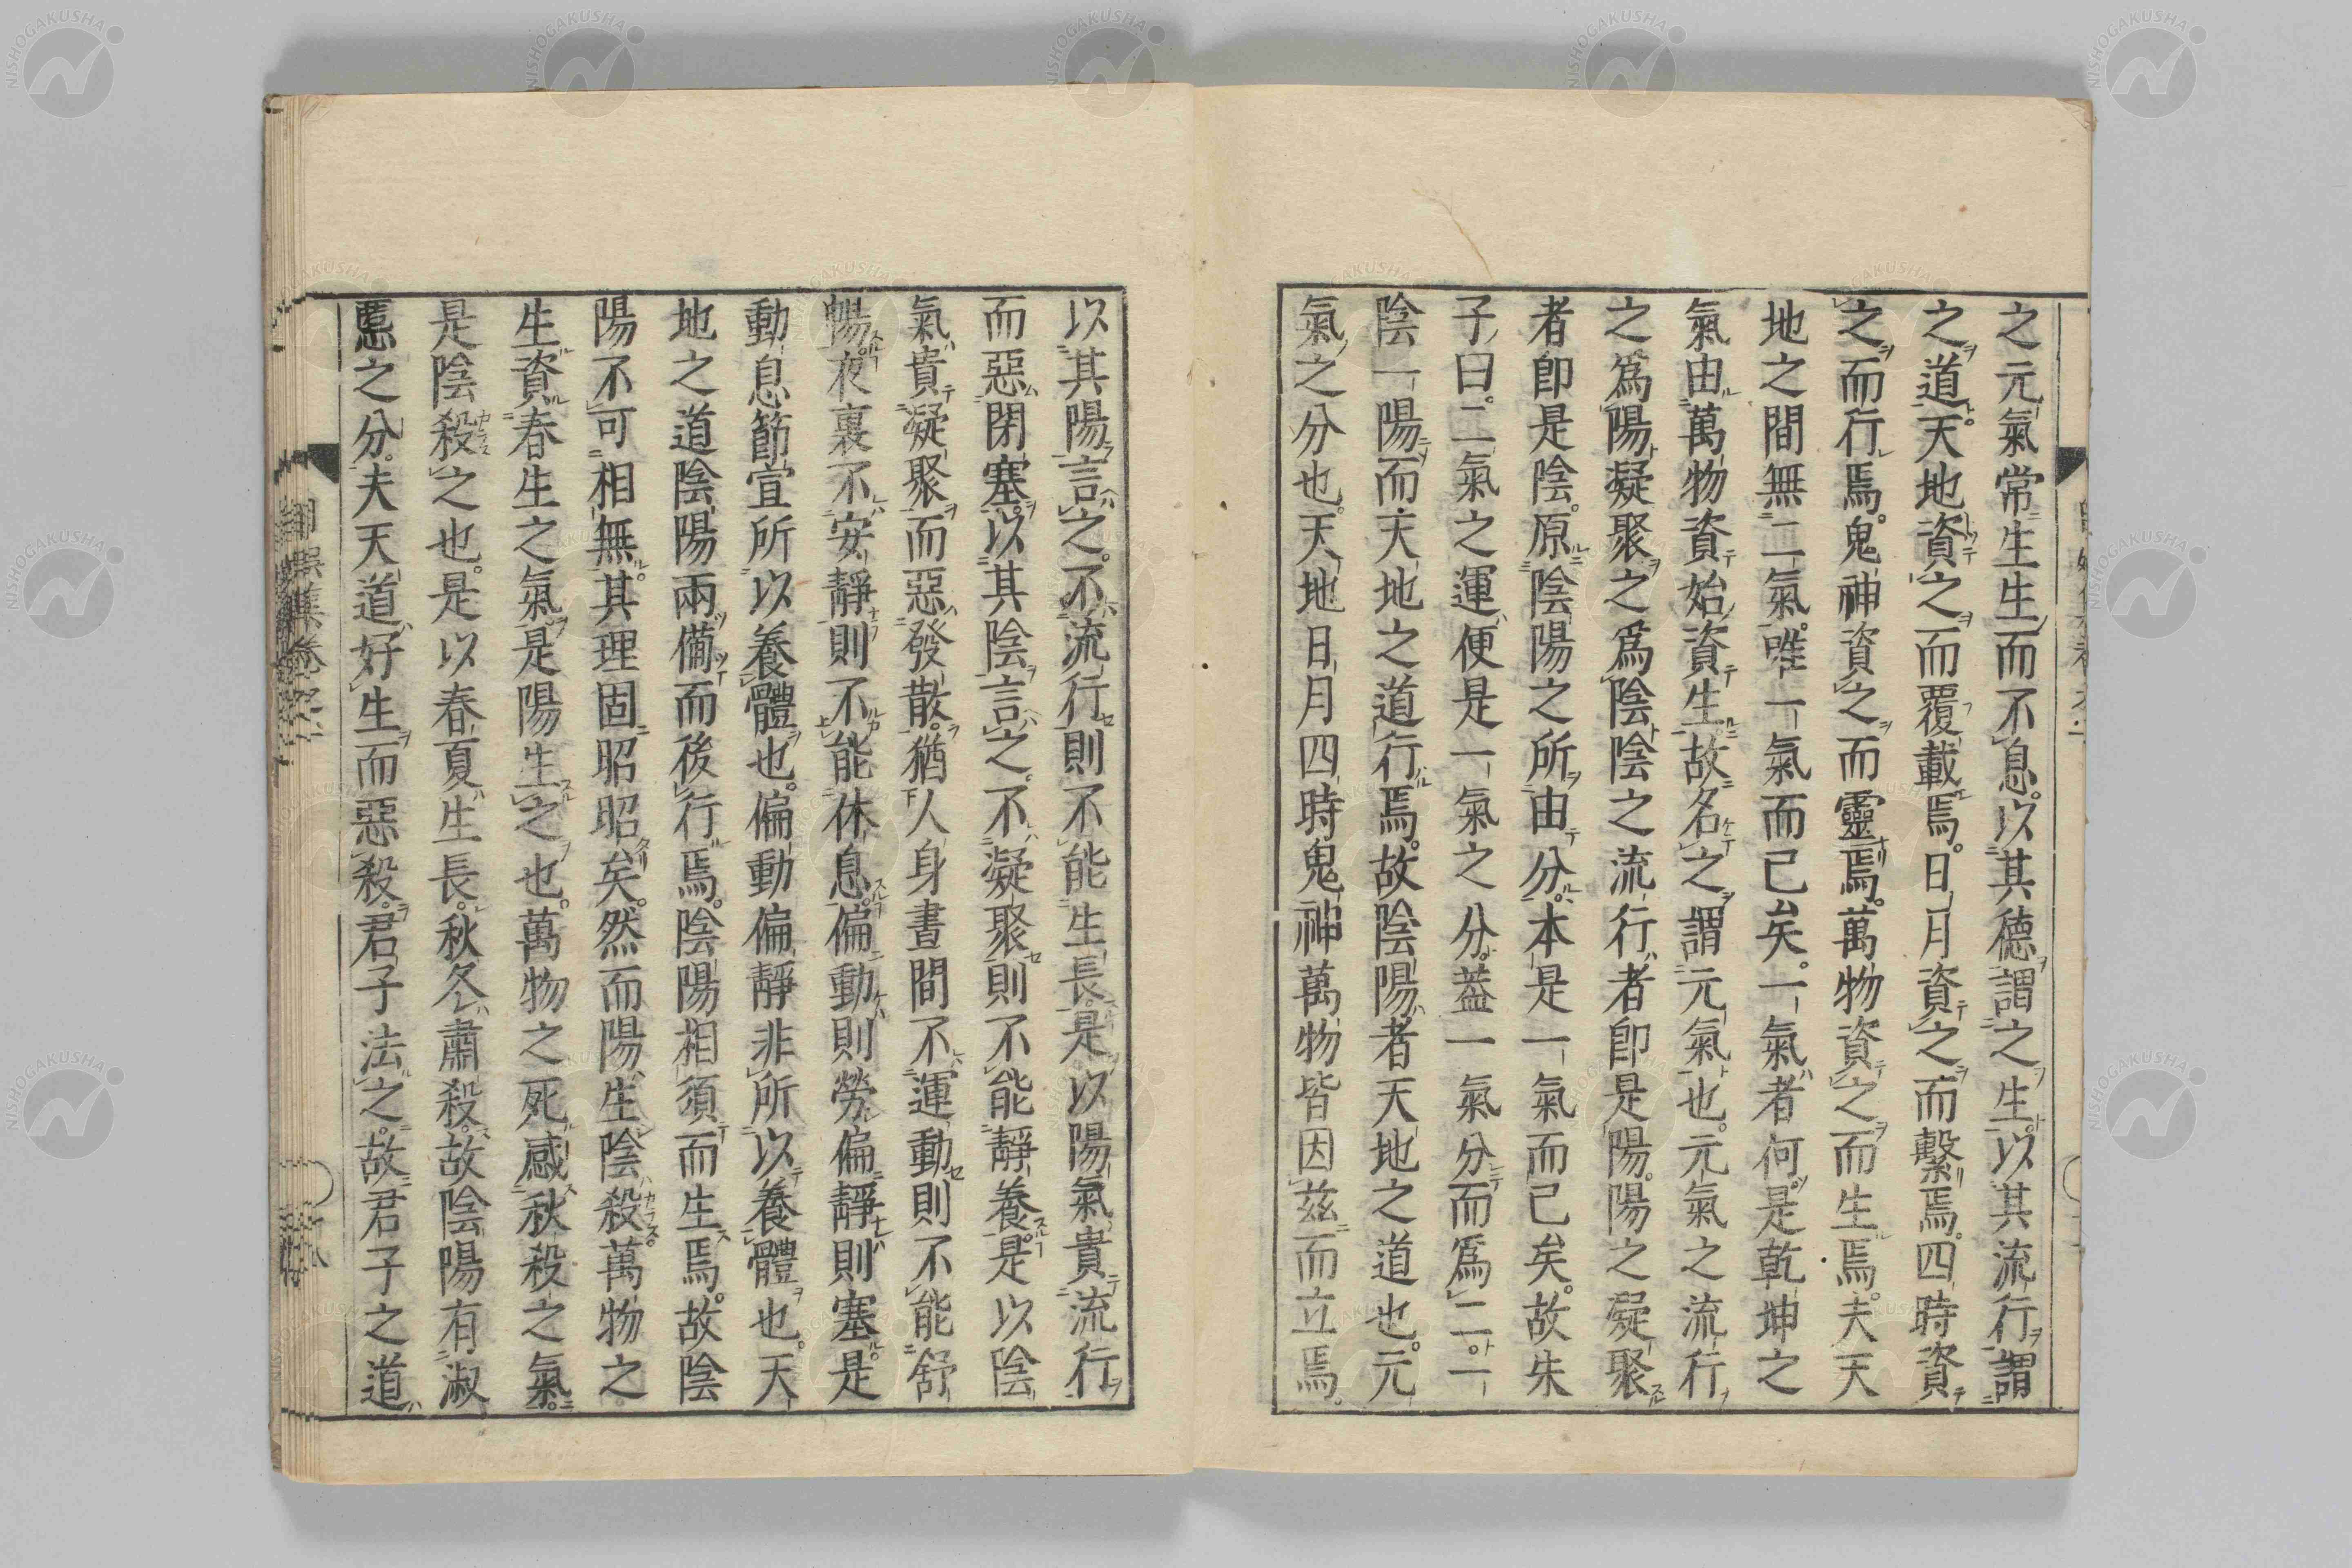 之元氣常生生而不息。以其德謂之生。以其流行謂
之道。天地資之而覆載焉。日月資之而繫焉。四時資
之而行焉。鬼神資之而靈焉。萬物資之而生焉。夫天
地之間無二氣。唯一氣而已矣。一氣者何。是乾坤之
氣由萬物資始資生。故名之謂元氣也。元氣之流行
之爲陽凝聚之爲陰陰之流行者卽是陽。陽之凝聚
者卽是陰。原陰陽之所由分。本是一氣而已矣。故朱
子曰。二氣之運便是一氣之分。蓋一氣分而爲二。一
陰一陽而天地之道行焉。故陰陽者天地之道也。元
氣之分也。天地日月四時鬼神萬物皆因茲而立焉。
以其陽言之。不流行則不能生長。是以陽氣貴流行
而惡閉塞。以其陰言之。不凝聚則不能靜養。是以陰
氣貴凝聚而惡發散。猶人身晝間不運動則不能舒
暢。夜裏不安靜則不能休息。偏動則勞偏靜則塞是
動息節宣所以養體也。偏動偏靜非所以養體也。天
地之道陰陽兩備而後行焉。陰陽相須而生焉。故陰
陽不可相無。其理固昭昭矣。然而陽生陰殺。萬物之
生資春生之氣是陽生之也。萬物之死感秋殺之氣。
是陰殺之也。是以春夏生長。秋冬肅殺。故陰陽有淑
慝之分。夫天道好生而惡殺。君子法之。故君子之道
NISHOGAKUSHA